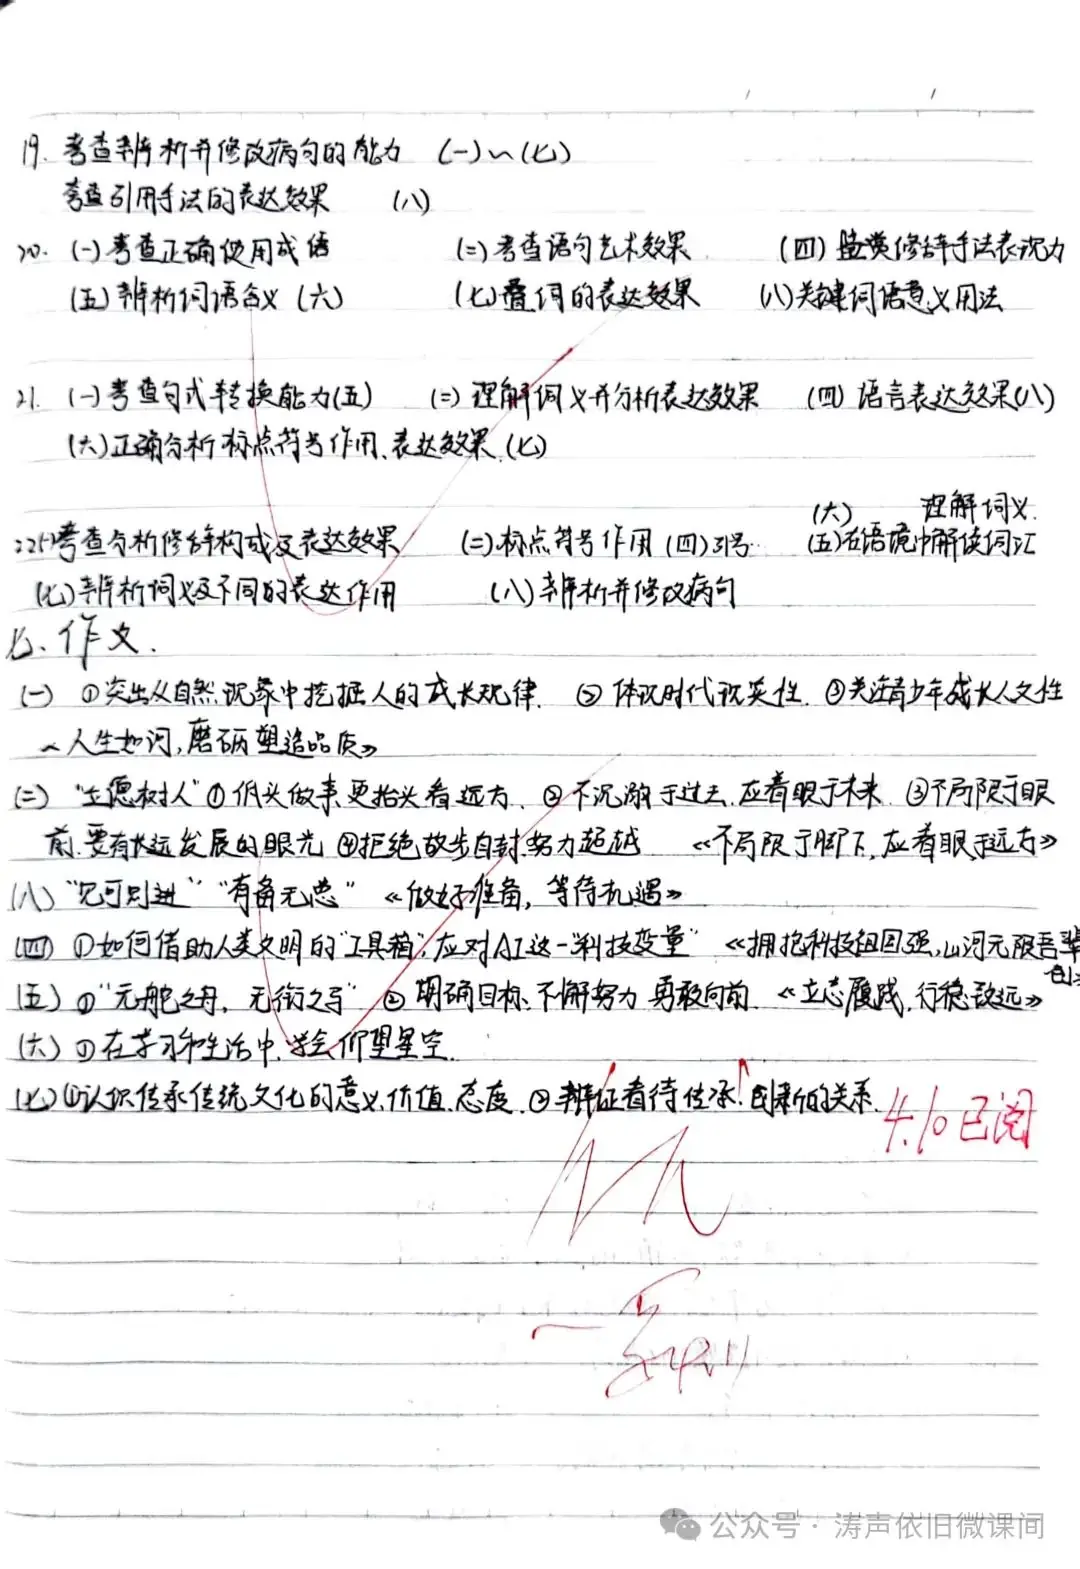 19. 考查辨析并修改病句的能力 (一)~(七)
考查引用手法的表达效果 (八)
20. (一)考查正确使用成语 (二)考查语句艺术效果 (四)鉴赏修辞手法表现力
(五)辨析词语含义(六) (七)叠词的表达效果 (八)关键词语意义用法
21. (一)考查句式转换能力(五) (二)理解词义并分析表达效果 (四)语言表达效果(八)
(六)正确分析标点符号作用、表达效果(七)
(六) 理解词义.
22(一)考查分析修辞构成及表达效果 (二)标点符号作用(四)引号 (五)在语境中解读词汇
(七)辨析词义及不同的表达作用 (八)辨析并修改病句
七、作文.
(一) ①突出从自然现象中挖掘人的成长规律. ②体现时代现实性. ③关注青少年成长人文性
《人生如河,磨砺塑造品质》
(二) "立德树人"①低头做事更抬头看远方. ②不沉溺于过去,应着眼于未来 ③不局限于眼
前,要有长远发展的眼光 ④拒绝故步自封,努力超越 《不局限于脚下,应着眼于远方》
(八)"见可则进" "有备无患" 《做好准备,等待机遇》
(四) ①如何借助人类文明的"工具箱",应对AI这一"科技变量" 《拥抱科技祖国强,山河无限吾辈
(五) ①"无舵之舟,无衔之马" ②明确目标、不懈努力 勇敢向前 《立志履践,行稳致远》
(六) ①在学习和生活中,学会仰望星空.
(七)①认识传承传统文化的意义,价值,态度. ②辩证看待传承、创新的关系.
4.10已阅
公众号·涛声依旧微课间